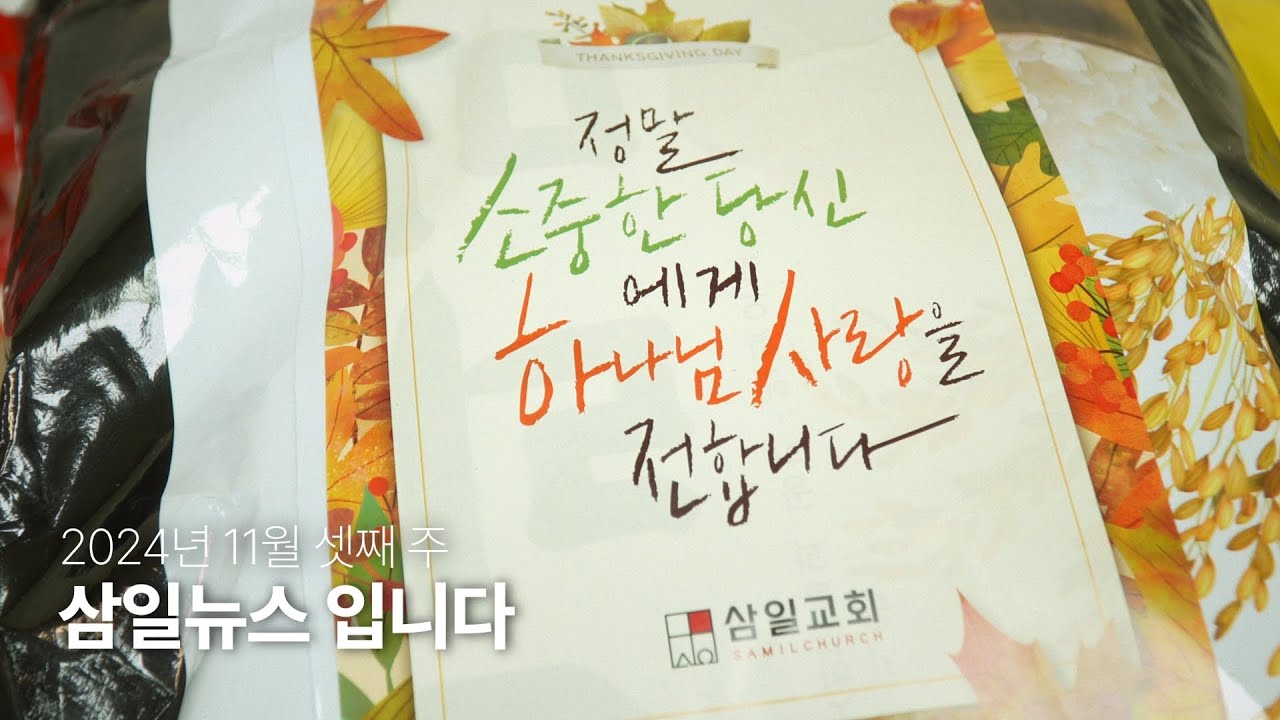 THANKSGIVING DAY
정말
소중한 당신
에게
하나님 사랑을
전합니다
삼일교회
SAMILCHURCH
2024년 11월 셋째 주
삼일뉴스 입니다